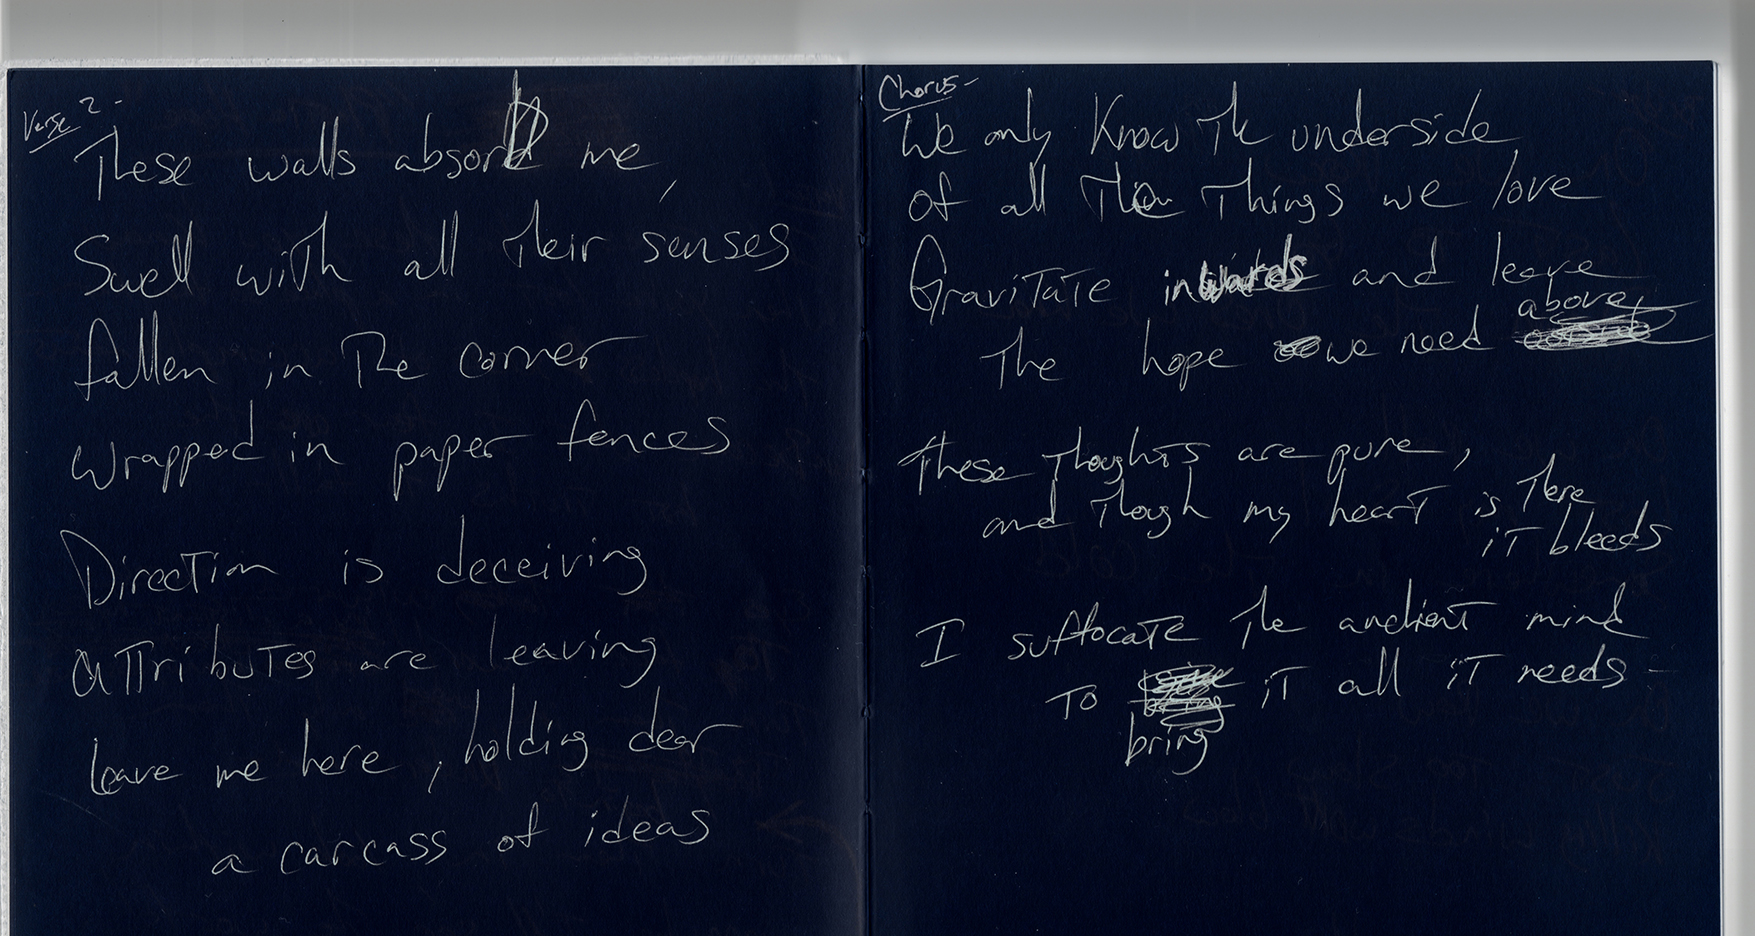 Verse 2 -
These walls absorb me,
Swell with all their senses
fallen in the corner
wrapped in paper fences
Direction is deceiving
attributes are leaving
leave me here, holding dear
a carcass of ideas
Chorus -
We only know the underside
of all the things we love
Gravitate inwards and leave
the hope we need above,
These thoughts are pure,
and though my heart is there
it bleeds
I suffocate the ancient mind
to bring it all it needs -